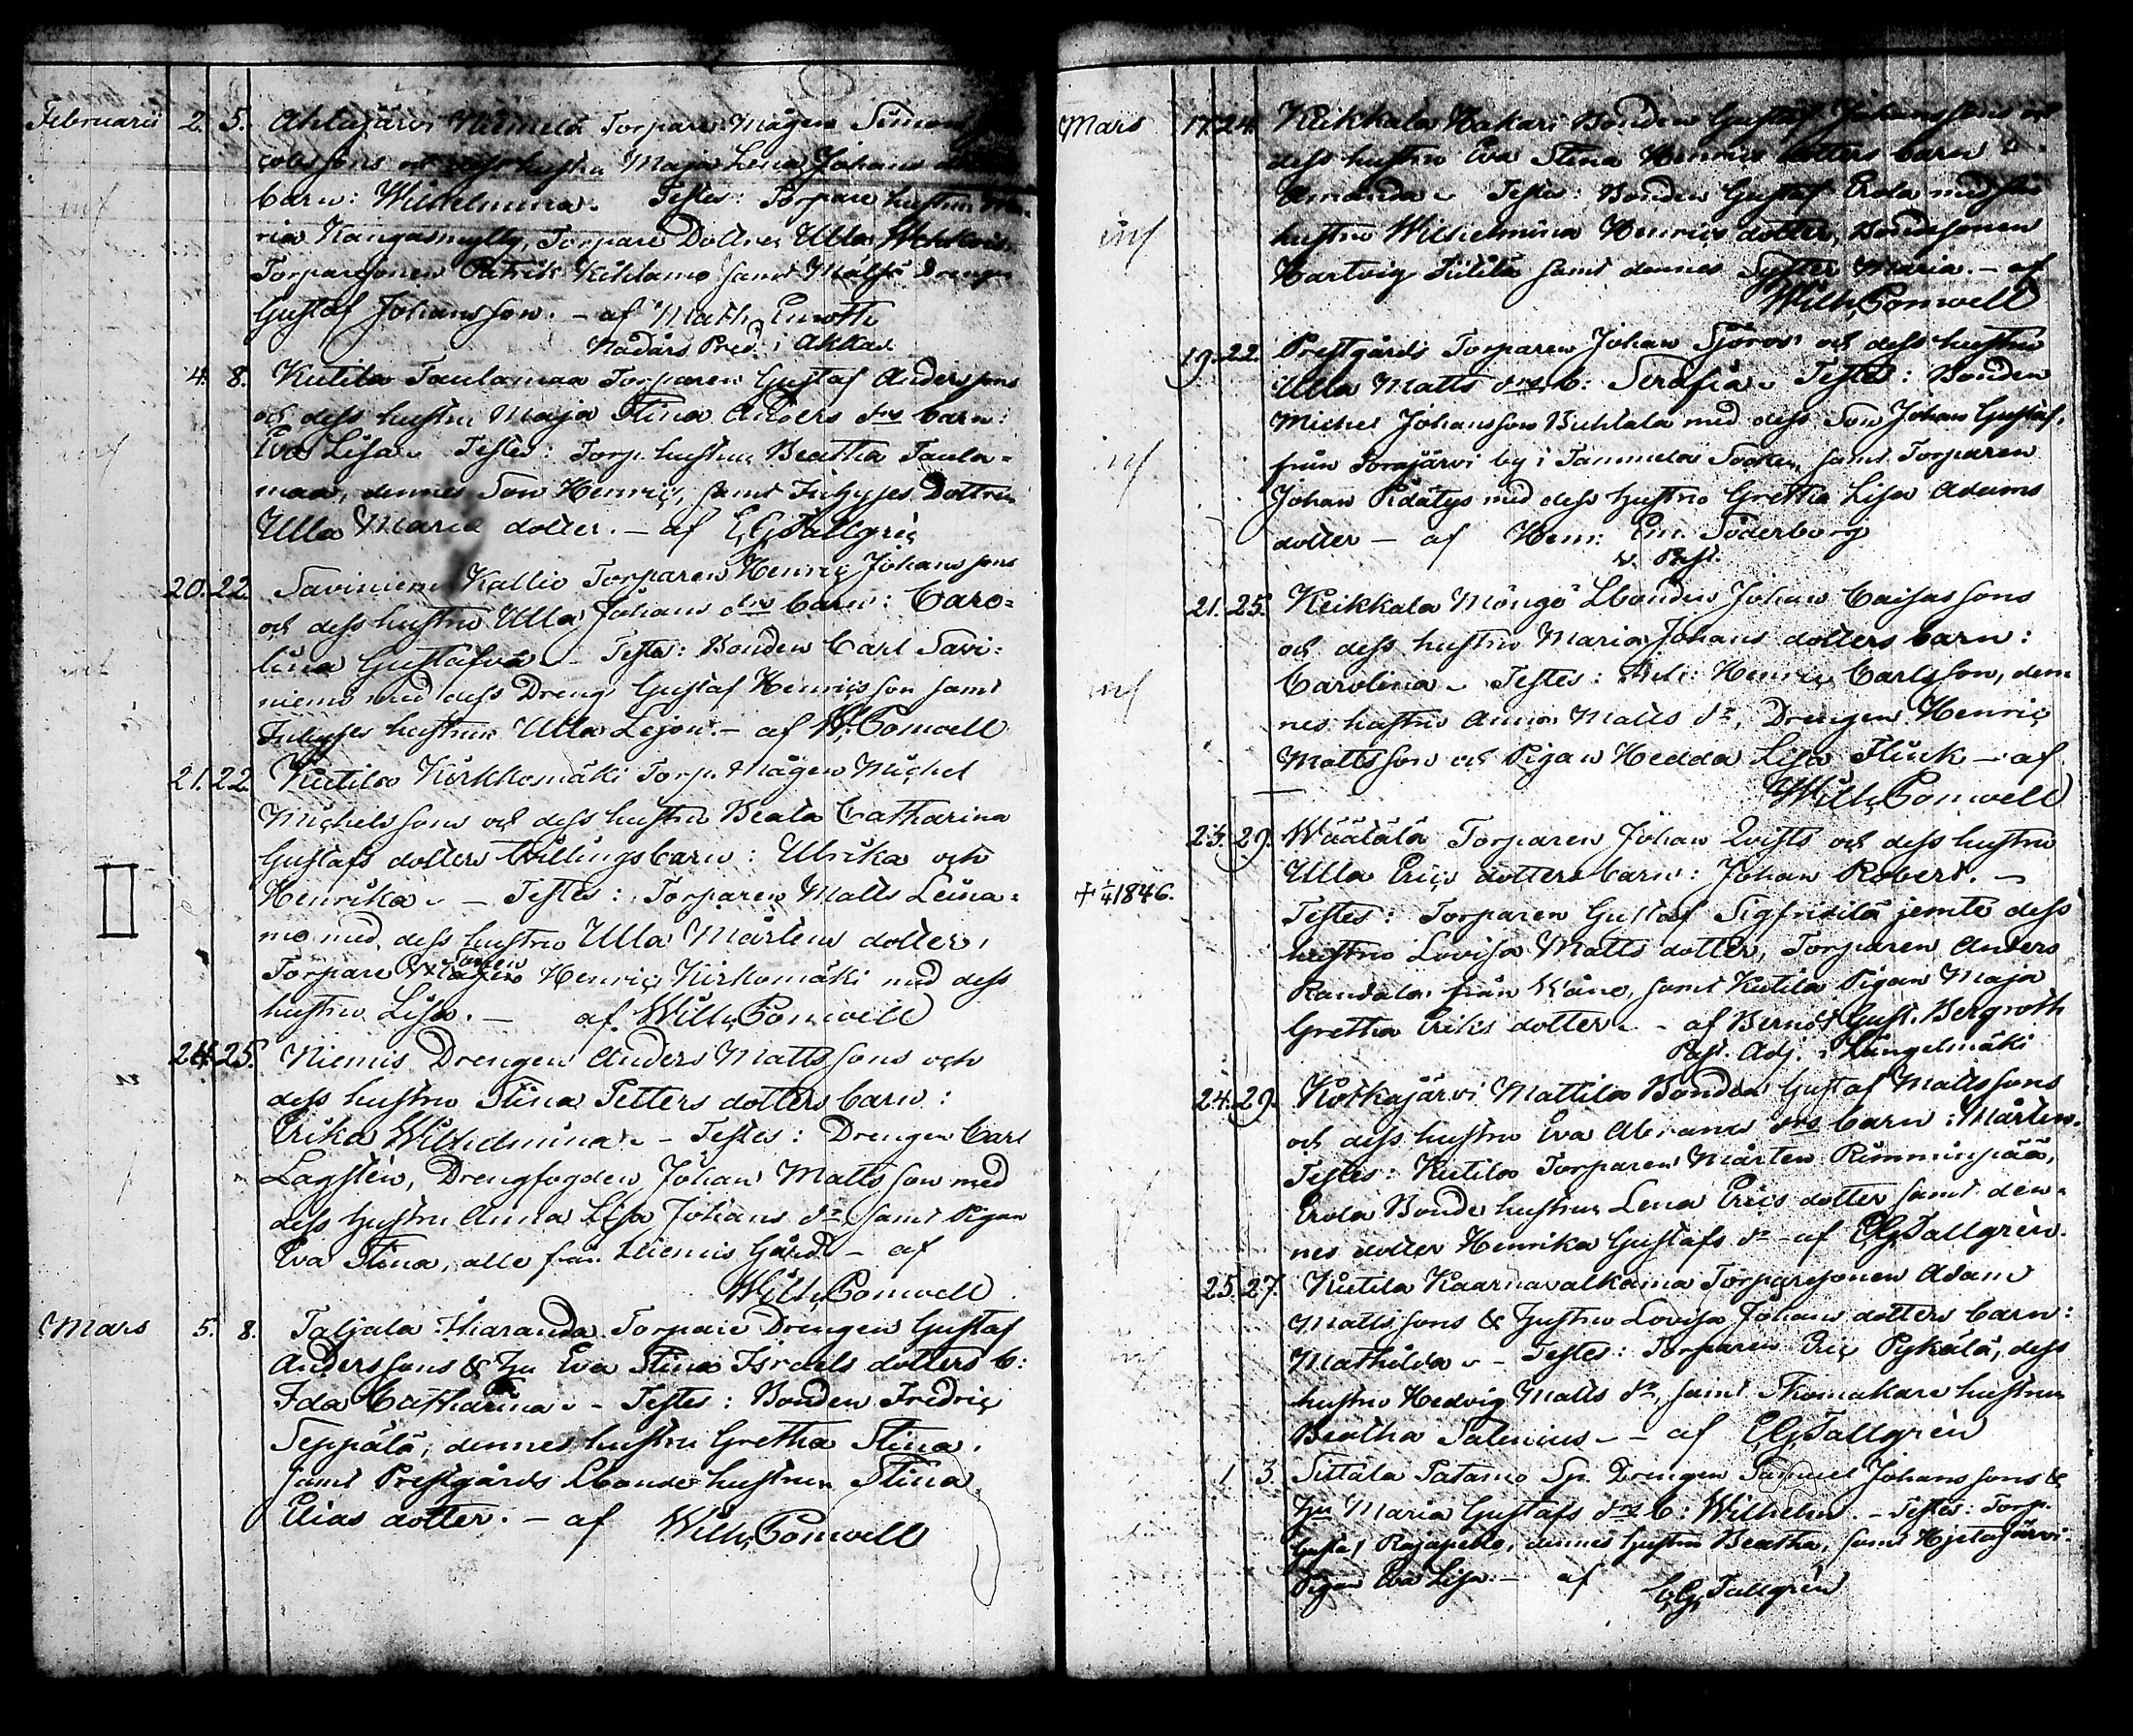 Februarii 2. 5. Ahtiajärvi Niemelä Torpare Mågen Simon
cobssons och dess hustru Maja Lena Johans
barn: Wilhelmina. Testes: Torpare hustrun Ma-
ria Kangasmylly, Torpare Dottren Ulla
Torparesonen Patrik Kihlamo samt Drengen
Gustaf Johansson. – af Math. Enroth
Nådårs Pred. i Akkas.
4. 8. Kutila Taulamaa Torparen Gustaf Anderssons
och dess hustru Maja Stina Anders drs barn:
Eva Lisa. Testes: Torp. hustrun Beatha Taula-
maa, dennes Son Henric, samt Inhyses Dottren
Ulla Maria dotter. – af E. G. Tallgrén
20. 22. Saviniemi Kallio Torparen Henric Johanssons
och dess hustru Ulla Johans drs barn: Caro-
lina Gustafva. – Testes: Bonden Carl Savi-
niemi med dess Dreng Gustaf Henricsson samt
Inhyses hustrun Ulla Lejon. – af W. Pomoell
21. 22. Kutila Kirkkomäki Torp. Mågen Michel
Michelssons och dess hustru Beata Catharina
Gustafs dotters tvillingsbarn: Ulrika och
Henrika. – Testes: Torparen Matts Leina-
mo med dess hustru Ulla Mårtens dotter,
Torpare Sonen Henric Kirkomäki med dess
hustru Lisa. – af Wilh. Pomoell
24. 25. Niemis Drengen Anders Mattssons och
dess hustru Stina Petters dotters barn:
Erika Wilhelmina. – Testes: Drengen Carl
Lagsten, Drengfogden Johan Mattsson med
dess hustru Anna Lisa Johans dr samt Pigan
Eva Stina, alla från Niemis Gård – af
Wilh. Pomoell
Mars 5. 8. Taljala Hiaranda Torpare Drengen Gustaf
Anderssons & Hu Eva Stina Israels dotters b:
Ida Catharina. – Testes: Bonden Fredric
Seppälä, dennes hustru Gretha Stina,
samt Prestgårds Lbonde hustrun Stina
Elias dotter. – af Wilh. Pomoell
Mars 17. 24. Keikkala Hakari Bonden Gustaf Johanssons och
dess hustru Eva Stina Henrics dotters barn
Amanda. Testes: Bonden Gustaf Erola med sin
hustru Wilhelmina Henrics dotter, Bondesonen
Hartvig Tiitilä samt dennes Syster Maria. – af
Wilh. Pomoell
19. 22. Prestgårds Torparen Johan Sjöros och dess hustru
Ulla Matts drs b: Serafia. Testes: Bonden
Michel Johansson Buhlala med dess Son Johan Gustaf,
från Torajärvi by i Tammela Socken, samt Torparen
Johan Pidätys med dess hustru Gretha Lisa Adams
dotter – af Henr. Em. Söderborg
v. Past.
21. 25. Keikkala Möngö Lbonden Johan Caisassons
och dess hustru Maria Johans dotters barn:
Carolina. Testes: Henric Carlsson, den-
nes hustru Anna Matts dr, Drengen Henric
Mattsson och Pigan Hedda Lisa Flinck – af
Wilh. Pomoell
23. 29. Wäätälä Torparen Johan Qvists och dess hustru
Ulla Erics dotters barn: Johan Robert. –
† 1/4 1846.
Testes: Torparen Gustaf Sigfridilä jemte dess
hustru Lovisa Matts dotter, Torparen Anders
Randala från Wåno, samt Kutila Pigan Maja
Gretha Eriks dotter. – af Berndt Gust. Bergroth
Past. Adj. i Längelmäki
24. 29. Kotkajärvi Mattila Bonden Gustaf Mattssons
och dess hustru Eva Abrams drs barn: Mårten.
Testes: Kutila Torparen Mårten Rimminpää,
Erola Bonde hustrun Lena Erics dotter samt den-
nes dotter Henrika Gustafs dr – af E. G. Tallgrén.
25. 27. Kutila Kaarnavalkama Torparesonen Adam
Mattssons & Hustru Lovisa Johans dotters barn:
Mathilda. – Testes: Torparen Eric Pykälä, dess
hustru Hedvig Matts dr, samt Skomakare hustrun
Beatha Salenius – af E. G. Tallgrén
1. 3. Sittala Tatamo Sp. Drengen Samuel Johanssons &
Hu Maria Gustafs drs b: Wilhelm. – Testes: Torp.
Gustaf Rajapelto, dennes hustru Beatha, samt Hjetajärvi
Pigan Eva Lisa. – af E. G. Tallgrén